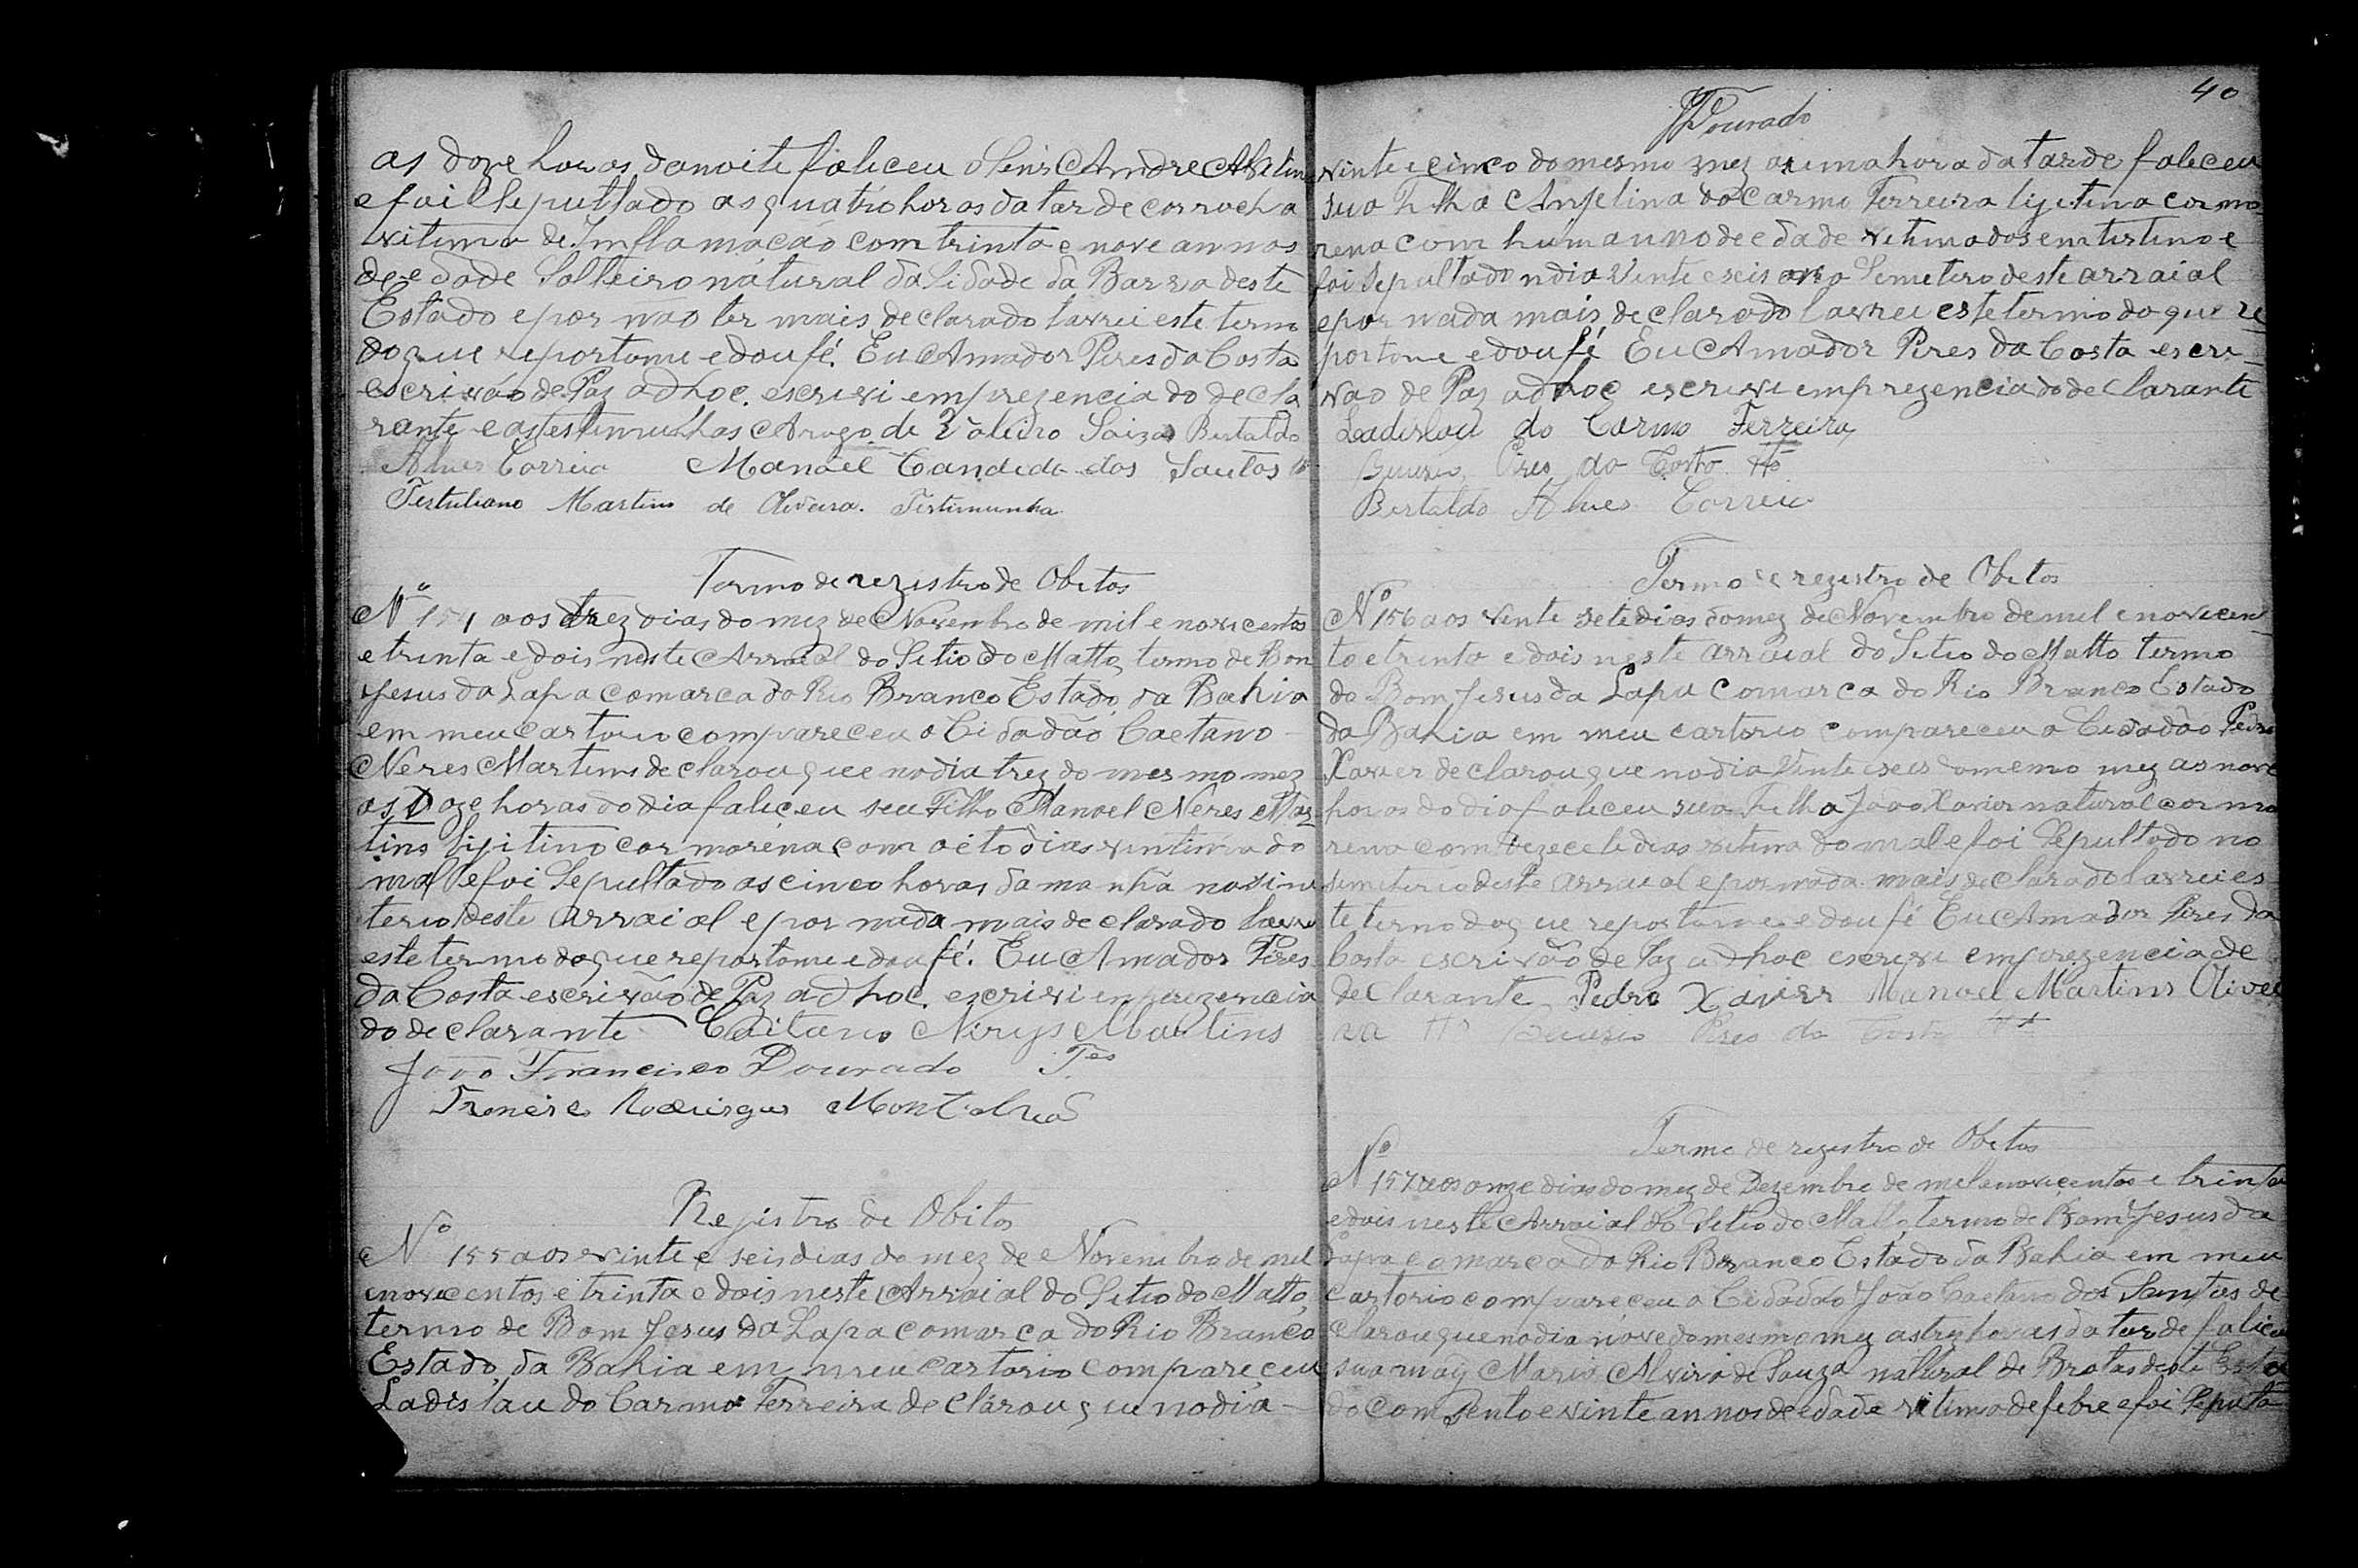 as doze horas danoite faliceu o Senr Andre
e foi Sepultado as quatro horas da tarde cor rocha
vitima de Inflamacão com trinta e nove annos
de edade Solteiro natural da Sidade da Barra deste
Estado e por não ter mais declarado lavrei este termo
do que reportome e dou fé. Eu Amador Pires da Costa
escrivão de Paz adhoc. escrivi em prezencia do decla
rante e as testemunhas de Bertaldo
Alves Correia Manoel Candido dos Santos
Tertuliano Martins de Oliveira. Testimunha
Termo de rezistro de Obitos
Nº 154 aos trez dias do mez de Novembro de mil e novicentos
e trinta e dois neste Arraial do Sitio do Matto, termo de Bom
Jesus da Lapa comarca do Rio Branco Estado da Bahia
em meu cartorio compareceu o Cidadão Caetano
Neres Martins declarou que no dia trez do mesmo mez
as Doze horas do dia faliceu seu Filho Manoel Neres Mar
tins ligitimo cor morena com oito dias do
mal e foi Sepultado as cinco horas da manhã no
terio deste arraial e por nada mais declarado lavrei
este termo do que reportome e dou fé. Eu Amador Pires
da Costa escrivão de Paz adhoc. escrivi em prezencia
do declarante Caitano Nirys Martins
João Francisco Dourado Tes
Rodrigues
Registro de Obitos
Nº 155 aos vinte e seis dias do mez de Novembro de mil
enovecentos e trinta e dois neste Arraial do Sitio do Matto,
termo de Bom Jesus da Lapa comarca do Rio Branco
Estado da Bahia em meu cartorio compareceu
Ladislau do Carmo Ferreira declarou que no dia
40
JFDourado
vinte e cinco do mesmo mez as uma hora da tarde faliceu
sua Filha Anjelina do Carmo Ferreira lijitima cor mo
rena com hum anno de edade vitima dos emtistino e
foi Sepultado no dia Vinte e seis no Semetero deste arraial
e por nada mais declarado lavreu este termo do que re
portome e dou fé Eu Amador Pires da Costa escri
vao de Paz adhoc escrivi em prezencia do declarante
Ladislau do Carmo Ferreira
Pires da Costa
Bertaldo Alves Correia
Termo de rezistro de Obitos
Nº 156 aos vinte sete dias do mez de Novembro de mil e novicen
to e trinta e dois neste arraial do Sitio do Matto termo
do Bom Jesus da Lapa Comarca do Rio Branco Estado
da Bahia em meu cartorio compareceu o Cidadão Pedro
Xavier declarou que no dia Vinte e seis do memo mez as nove
horas do dia faliceu sua Filha João Xavier natural cor mo
rena com dezecete dias vitima do mal e foi Sepultado no
semeterio deste arraial e por nada mais declarado lavrei es
te termo do que reportome e dou fé Eu Amador Pires da
Costa escrivão de Paz adhoc escrivi em prezencia de
declarante Pedro Xavier Manoel Martins Olivei
ra Pires da Costa
Termo de rezistro de Obitos
Nº 157 aos onze dias do mez de Dezembro de mil enovecentos e trinta
edois neste Arraial do Sitio do Matto, termo de Bom Jesus da
Lapa comarca do Rio Branco Estado da Bahia em meu
Cartorio compareceu o Cidadão João Caetano dos Santos de
clarou que no dia nove do mesmo mez as trez horas da tarde faliceu
sua may Maria Alvira de Souza natural de Brotas deste Esta
do com Sento e vinte annos de edade vitima de febre e foi Sepulta